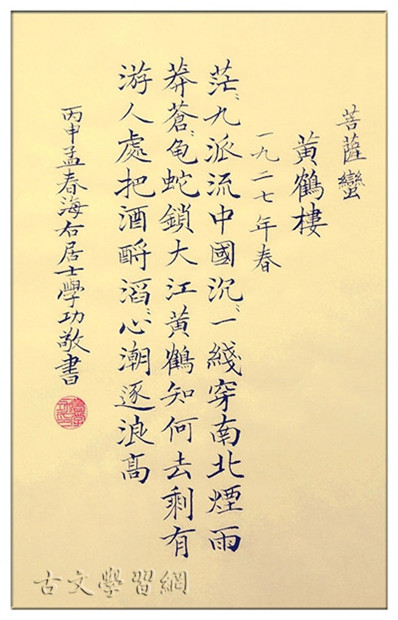 菩薩蠻
黃鶴樓
一九二七年春
茫〻九派流中國沉〻一綫穿南北煙雨
莽蒼〻龜蛇鎖大江黃鶴知何去剩有
游人處把酒酹滔〻心潮逐浪高
丙申孟春海右居士學功敬書
古文學習網